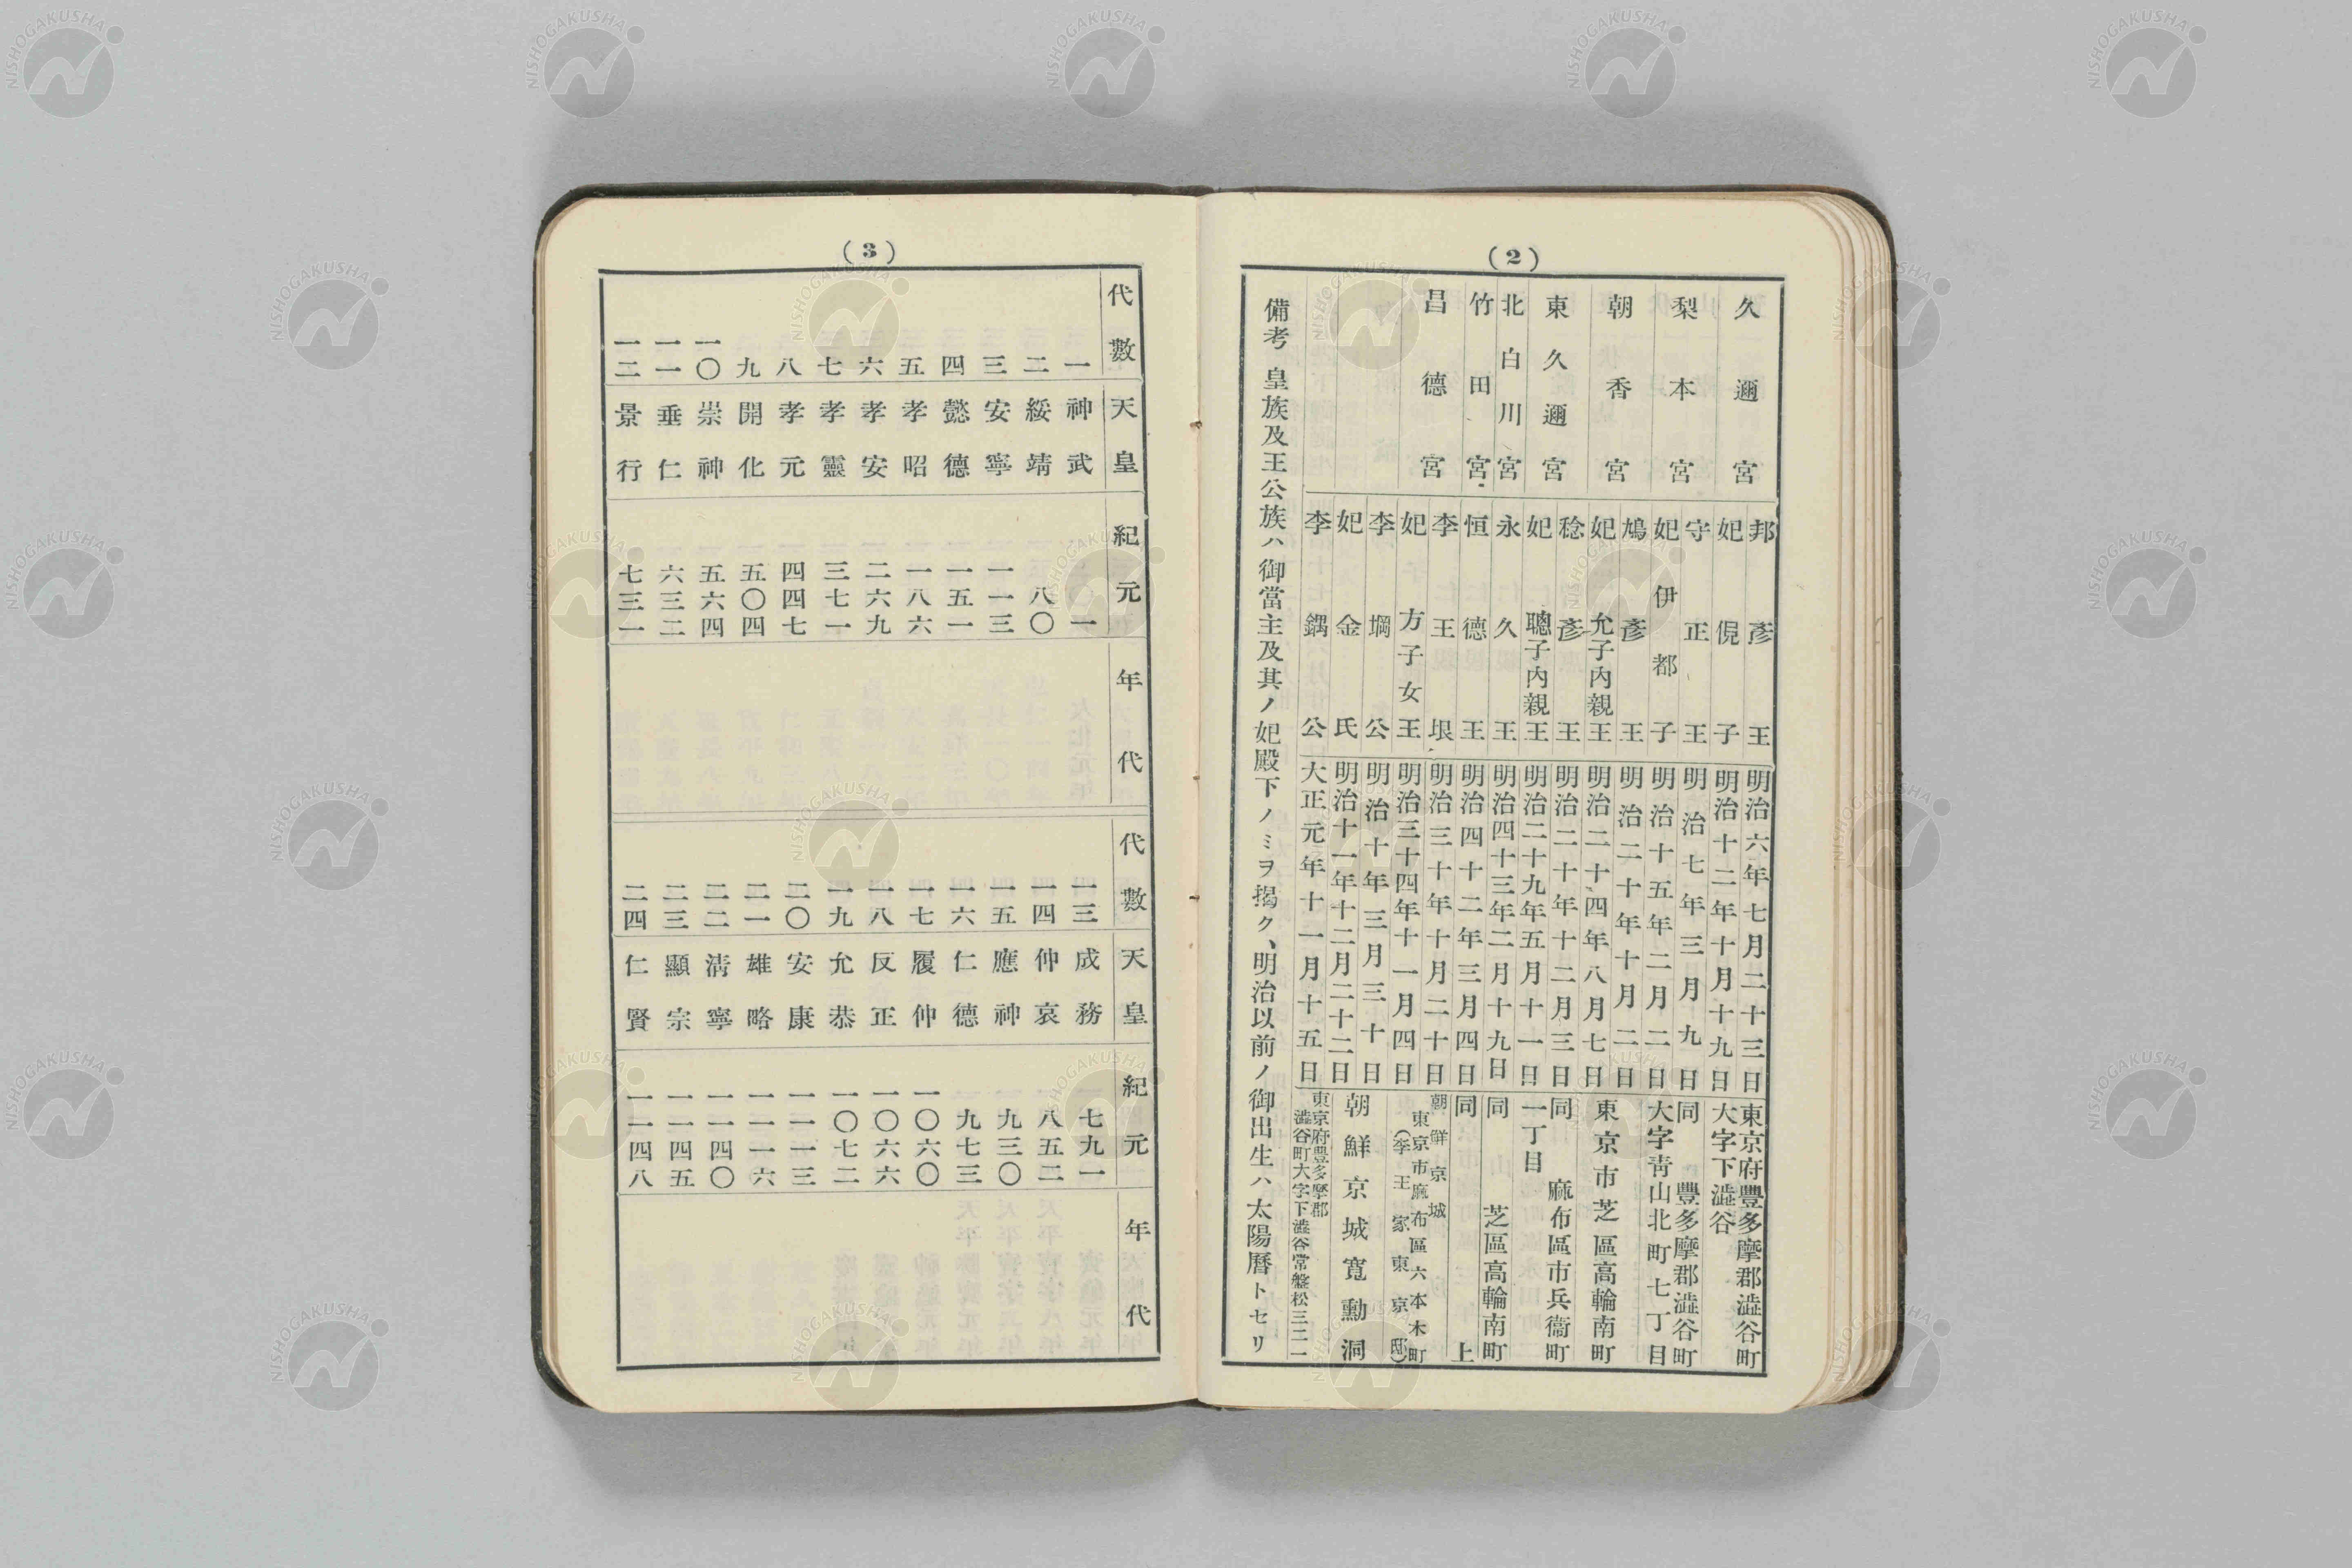 (2)
久邇宮 邦彥王 明治六年七月二十三日 東京府豐多摩郡澁谷町
妃俔子 明治十二年十月十九日 大字下澁谷
梨本宮 守正王 明治七年三月九日 同 豐多摩郡澁谷町
妃伊都子 明治十五年二月二日 大字靑山北町七丁目
朝香宮 鳩彥王 明治二十年十月二日 東京市芝區高輪南町
妃允子內親王 明治二十四年八月七日
東久邇宮 稔彥王 明治二十年十二月三日 同 麻布區市兵衞町
妃聰子內親王 明治二十九年五月十一日 一丁目
北白川宮 永久王 明治四十三年二月十九日 同 芝區高輪南町
竹田宮 恒德王 明治四十二年三月四日 同上
昌德宮 李王垠 明治三十年十月二十日 朝鮮京城
妃方子女王 明治三十四年十一月四日 東京市麻布區六本木町
(李王家東京邸)
李堈公 明治十年三月三十日 朝鮮京城寬勳洞
妃金氏 明治十一年十二月二十二日
李鍝公 大正元年十一月十五日 東京府豐多摩郡
澁谷町大字下澁谷常盤松三二一
備考 皇族及王公族ハ御當主及其ノ妃殿下ノミヲ揭ク、明治以前ノ御出生ハ太陽曆トセリ
(3)
代數 天皇 紀元 年代
一 神武 一
二 綏靖 八〇
三 安寧 一一三
四 懿德 一五一
五 孝昭 一八六
六 孝安 二六九
七 孝靈 三七一
八 孝元 四四七
九 開化 五〇四
一〇 崇神 五六四
一一 垂仁 六三二
一二 景行 七三一
代數 天皇 紀元 年代
一三 成務 七九一
一四 仲哀 八五二
一五 應神 九三〇
一六 仁德 九七三
一七 履仲 一〇六〇
一八 反正 一〇六六
一九 允恭 一〇七二
二〇 安康 一一一三
二一 雄略 一一一六
二二 淸寧 一一四〇
二三 顯宗 一一四五
二四 仁賢 一一四八
NISHOGAKUSHA